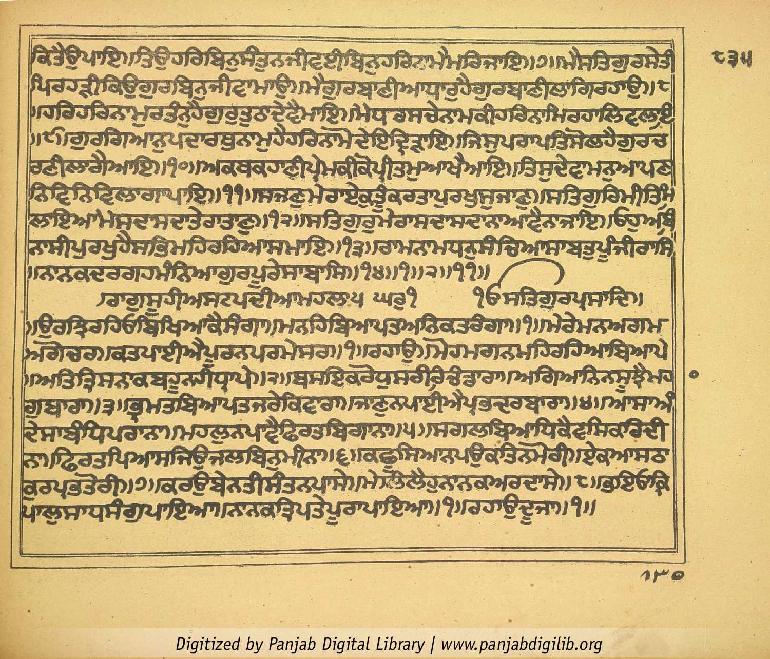 ਕਿਤੈਉਪਾਇ॥ਤਿਉਹਰਿਬਿਨੁਸੰਤੁਨਜੀਵਈਬਿਨੁਹਰਿਨਾਮੈਮਰਿਜਾਇ॥੭॥ਮੈਸਤਿਗੁਰਸੇਤੀ ੮੩੫
ਪਿਰਹੜੀਕਿਉਗੁਰਬਿਨੁਜੀਵਾਮਾਉ॥ਮੈਗੁਰਬਾਣੀਆਧਾਰੁਹੈਗੁਰਬਾਣੀਲਾਗਿਰਹਾਉ॥੮
॥ਹਰਿਹਰਿਨਾਮੁਰਤੰਨੁਹੈਗੁਰੁਤੁਠਾਦੇਵੈਮਾਇ॥ਮੈਧਰਸਚੇਨਾਮਕੀਹਰਿਨਾਮਿਰਹਾਲਿਵਲਾਇ
॥੯॥ਗੁਰਗਿਆਨੁਪਦਾਰਥੁਨਾਮੁਹੈਹਰਿਨਾਮੋਦੇਇਦ੍ਰਿੜਾਇ॥ਜਿਸੁਪਰਾਪਤਿਸੋਲਹੈਗੁਰਚ
ਰਣੀਲਾਗੈਆਇ॥੧੦॥ਅਕਥਕਹਾਣੀਪ੍ਰੇਮਕੀਕੋਪ੍ਰੀਤਮੁਆਖੈਆਇ॥ਤਿਸੁਦੇਵਾਮਨੁਆਪਣਾ
ਨਿਵਿਨਿਵਿਲਾਗਾਪਾਇ॥੧੧॥ਸਜਣੁਮੇਰਾਏਕੁਤੂੰਕਰਤਾਪੁਰਖੁਸੁਜਾਣੁ॥ਸਤਿਗੁਰਿਮੀਤਿਮਿ
ਲਾਇਆਮੈਸਦਾਸਦਾਤੇਰਾਤਾਣੁ॥੧੨॥ਸਤਿਗੁਰੁਮੇਰਾਸਦਾਸਦਾਨਾਆਵੈਨਾਜਾਇ॥ਓਹੁਅਬਿ
ਨਾਸੀਪੁਰਖੁਹੈਸਭਮਹਿਰਹਿਆਸਮਾਇ॥੧੩॥ਰਾਮਨਾਮਧਨੁਸੰਚਿਆਸਾਬਤੁਪੂੰਜੀਰਾਸਿ
॥ਨਾਨਕਦਰਗਹਮੰਨਿਆਗੁਰਪੂਰੇਸਾਬਾਸਿ॥੧੪॥੧॥੨॥੧੧॥
ਰਾਗੁਸੂਹੀਅਸਟਪਦੀਆਮਹਲਾ੫ ਘਰੁ੧ ੴਸਤਿਗੁਰਪ੍ਰਸਾਦਿ॥
॥ਉਰਝਿਰਹਿਓਬਿਖਿਆਕੈਸੰਗਾ॥ਮਨਹਿਬਿਆਪਤਅਨਿਕਤਰੰਗਾ॥੧॥ਮੇਰੇਮਨਅਗਮ
ਅਗੋਚਰ॥ਕਤਪਾਈਐਪੂਰਨਪਰਮੇਸਰ॥੧॥ਰਹਾਉ॥ਮੋਹਮਗਨਮਹਿਰਹਿਆਬਿਆਪੇ
॥ਅਤਿਤ੍ਰਿਸਨਾਕਬਹੂਨਹੀਧ੍ਰਾਪੇ॥੨॥ਬਸਇਕਰੋਧੁਸਰੀਰਿਚੰਡਾਰਾ॥ਅਗਿਆਨਿਨਸੂਝੈਮਹਾ
ਗੁਬਾਰਾ॥੩॥ਭ੍ਰਮਤਬਿਆਪਤਜਰੇਕਿਵਾਰਾ॥ਜਾਣੁਨਪਾਈਐਪ੍ਰਭਦਰਬਾਰਾ॥੪॥ਆਸਾਅੰ
ਦੇਸਾਬੰਧਿਪਰਾਨਾ॥ਮਹਲੁਨਪਾਵੈਫਿਰਤਬਿਗਾਨਾ॥੫॥ਸਗਲਬਿਆਧਿਕੈਵਸਿਕਰਿਦੀ
ਨਾ॥ਫਿਰਤਪਿਆਸਜਿਉਜਲਬਿਨੁਮੀਨਾ॥੬॥ਕਛੂਸਿਆਨਪਉਕਤਿਨਮੋਰੀ॥ਏਕਆਸਠਾ
ਕੁਰਪ੍ਰਭਤੋਰੀ॥੭॥ਕਰਉਬੇਨਤੀਸੰਤਨਪਾਸੇ॥ਮੇਲਿਲੈਹੁਨਾਨਕਅਰਦਾਸੇ॥੮॥ਭਇਓਕ੍ਰਿ
ਪਾਲੁਸਾਧਸੰਗੁਪਾਇਆ॥ਨਾਨਕਤ੍ਰਿਪਤੇਪੂਰਾਪਾਇਆ॥੧॥ਰਹਾਉਦੂਜਾ॥੧॥
Digitized by Panjab Digital Library | www.panjabdigilib.org